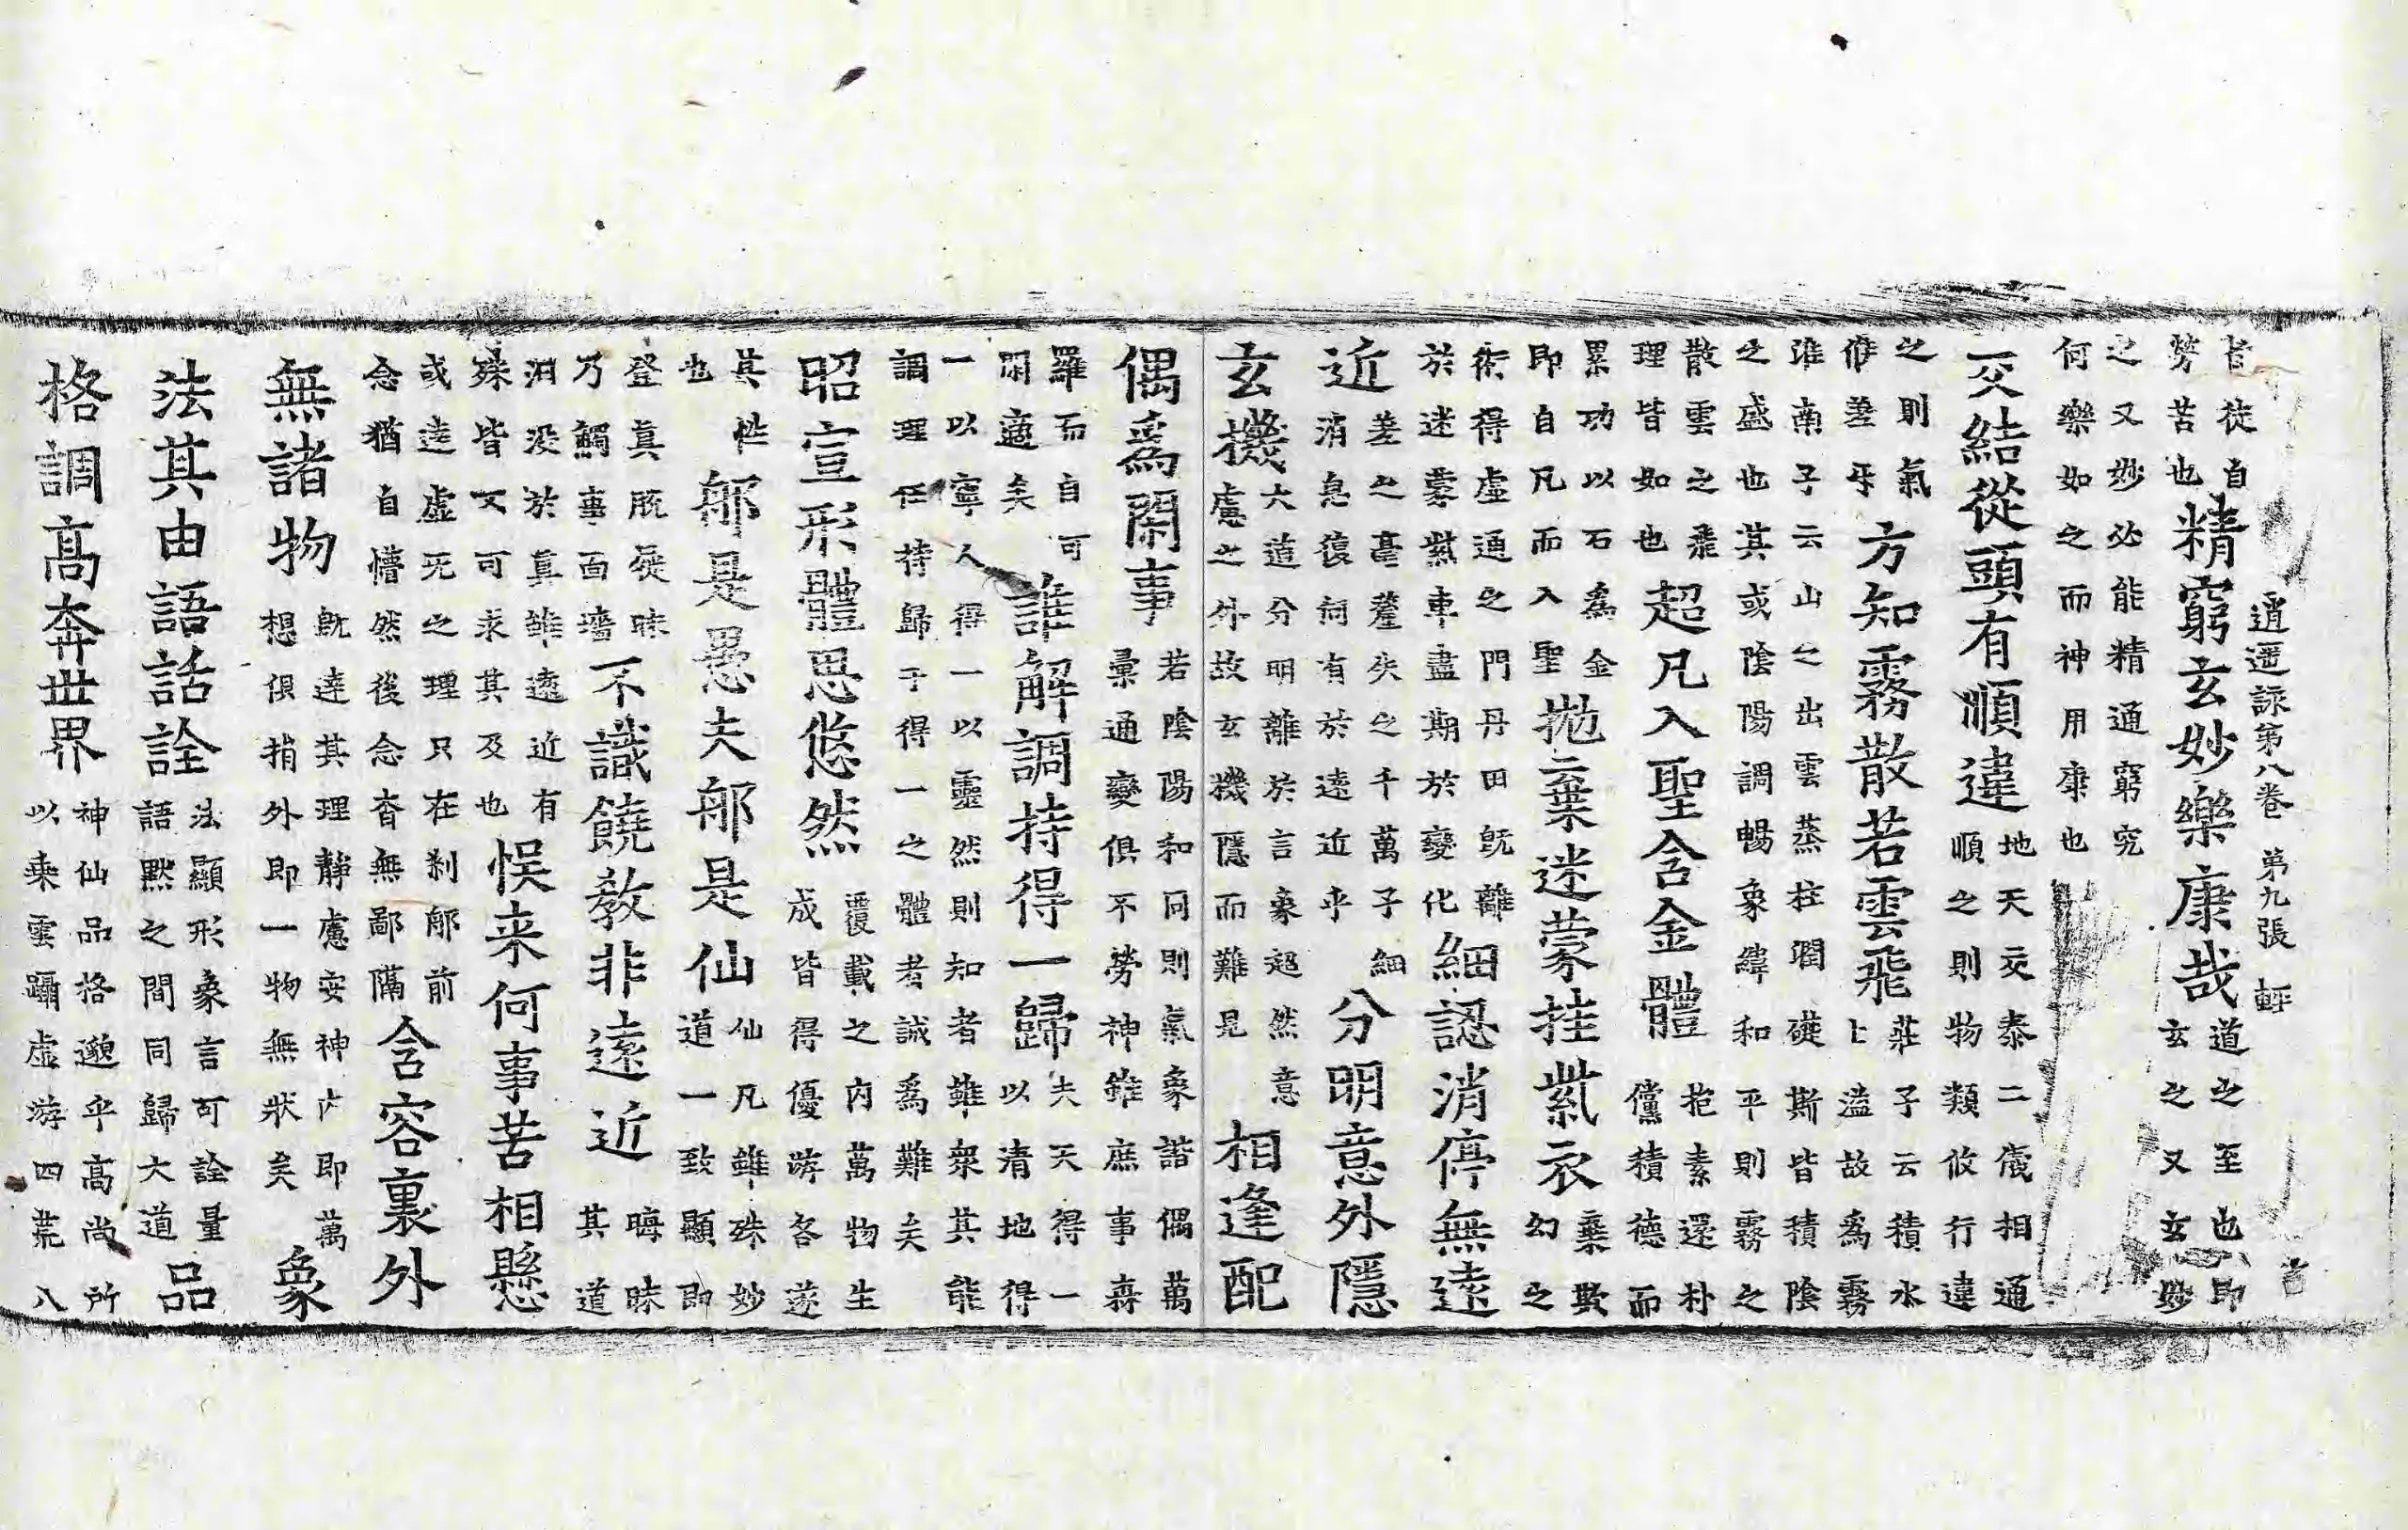 逍遥詠第八卷 第九張 輕
旨徒自
勞苦也
精窮玄妙樂康哉
道之至也即
玄之又玄妙
之又妙必能精通窮究
何樂如之而神用康也
交結從頭有順違
地天交泰二儀相通
順之則物類攸行違
之則氣
候差乎
方知霧散若雲飛
莊子云積水
上溢故爲霧
淮南子云山之出雲蒸柱潤礎斯皆積陰
之盛也其或陰陽調暢象緯和平則霧之
散雲之飛
理皆如也
超凡入聖含金體
抱素還朴
儻積德而
累功以石爲金
即自凡而入聖
拋棄迷蒙挂紫衣
棄欺
幻之
術得虛通之門丹田旣離
於迷蒙紫車盡期於變化
細認消停無遠
近
差之毫釐失之千萬子細
消息復祠有於遠近乎
分明意外隱
玄機
大道分明離於言象超然意
慮之外故玄機隱而難見
相逢配
偶爲閑事
若陰陽和同則氣象諧偶萬
彙通變俱不勞神雖庶事森
羅而自可
閑適矣
誰解調持得一歸
夫天得一
以清地得
一以寧人得一以靈然則知者雖衆其能
調理任持歸于得一之體者誠爲難矣
昭宣形體思悠然
覆載之内萬物生
成皆得優游各遂
其性
也
郍是愚夫郍是仙
仙凡雖殊妙
道一致顯即
登真脱屣昧
乃觸事面墻
不識饒教非遠近
晦昧
其道
汨没於真雖遠近有
殊皆又可求其及也
悮来何事苦相懸
或達虛无之理只在刹郍前
念猶自懵然後念杳無鄙隔
含容裏外
無諸物
旣達其理靜慮安神内即萬
想俱捐外即一物無狀矣
象
法其由語話詮
法顯形象言可詮量
語默之間同歸大道
品
格調高奔世界
神仙品格邈乎高尚所
以乘雲躡虛游四荒八